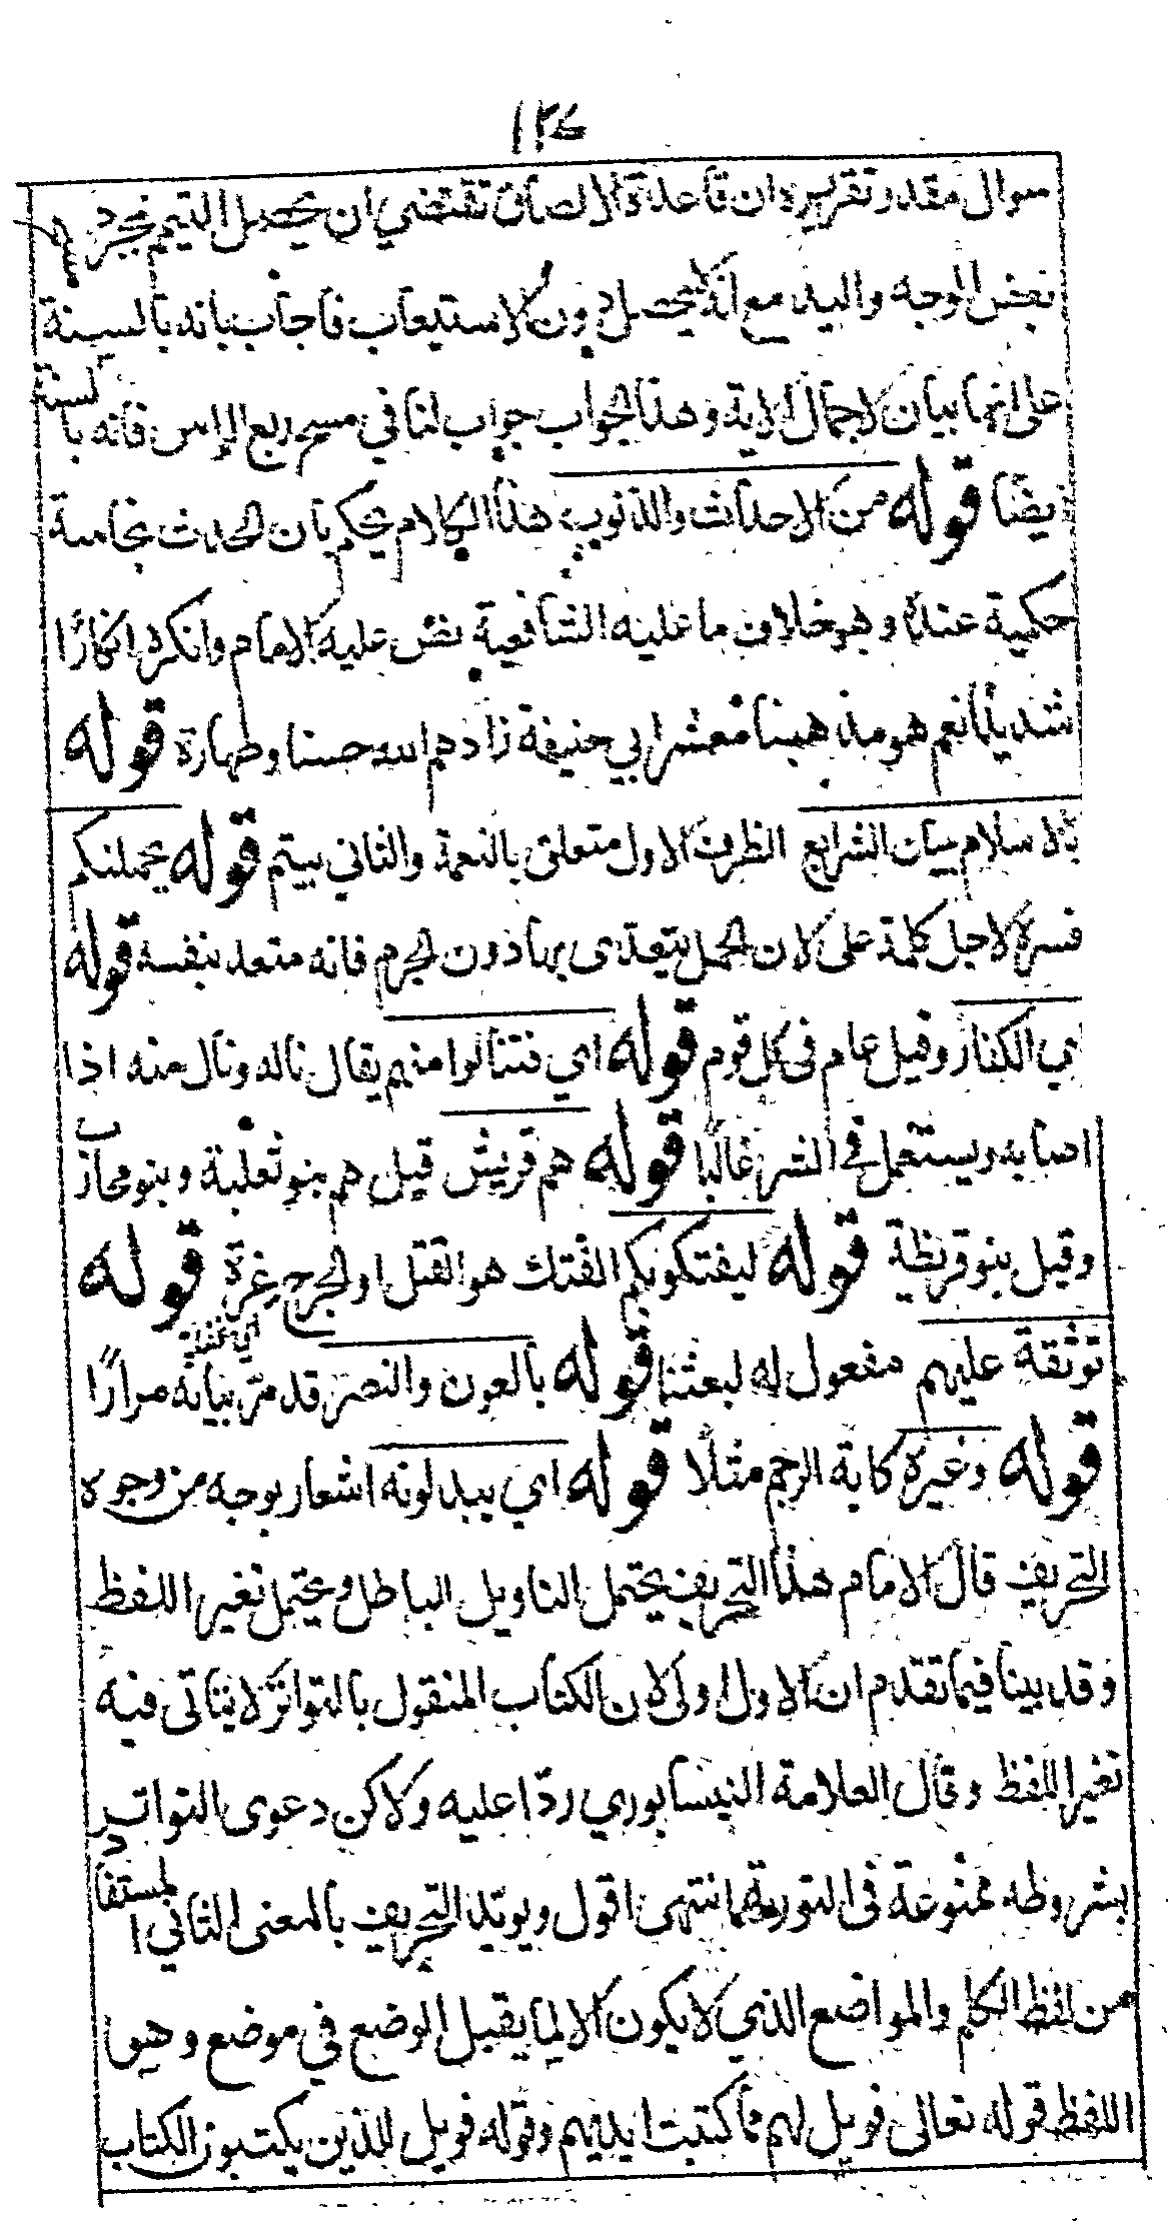 ١٢٤
سوال مقدر تقريره ان قاعدة الالصاق تقتضي ان يحصل التيمم بمجرد
بعض الوجه واليد مع انه لا يحصل دون الاستيعاب فاجاب بانه بالسنة
على انها بيان لاجمال الاية وهذا الجواب جواب لنا في مسح ربع الراس فانه بالسنة
ايضا قوله من الاحداث والذنوب هذا الكلام يحكم بان الحدث نجاسة
حكمية عنده وهو خلاف ما عليه الشافعية نص عليه الامام وانكره انكارًا
شديدًا نعم هو مذهبنا معشر ابي حنيفة زادهم الله حسنا وطهارة قوله
بالاسلام ببيان الشرايع الظرف الاول متعلق بالنعمة والثاني بيتم قوله يحملنكم
فسره لاجل كلمة على لان الحمل يتعدى بها دون الجرم فانه متعد بنفسه قوله
اي الكفار وقيل عام في كل قوم قوله اي فتنالوا منهم يقال ناله ونال منه اذا
اصابه ويستعمل في الشر غالبًا قوله هم قريش قيل هم بنو ثعلبة وبنو محارب
وقيل بنو قريظة قوله ليفتكوا بكم الفتك هو القتل او الجرح غرة قوله
اي غفلة
توثقة عليهم مفعول له لبعثنا قوله بالعون والنصر قد مرّ بيانه مرارًا
قوله وغيره كاية الرجم مثلًا قوله اي يبدلونه اشعار بوجه من وجوه
التحريف قال الامام هذا التحريف يحتمل التاويل الباطل ويحتمل تغير اللفظ
وقد بينا فيما تقدم ان الاول اولى لان الكتاب المنقول بالتواتر لا يتاتى فيه
تغير اللفظ وقال العلامة النيسابوري ردّا عليه ولاكن دعوى التواتر
بشروطه ممنوعة في التورية انتهى اقول ويويد التحريف بالمعنى الثاني المستفاد
من لفظ الكلم والمواضع الذي لا يكون الا لما يقبل الوضع في موضع وهو
اللفظ قوله تعالى فويل لهم مما كتبت ايديهم وقوله فويل للذين يكتبون الكتاب